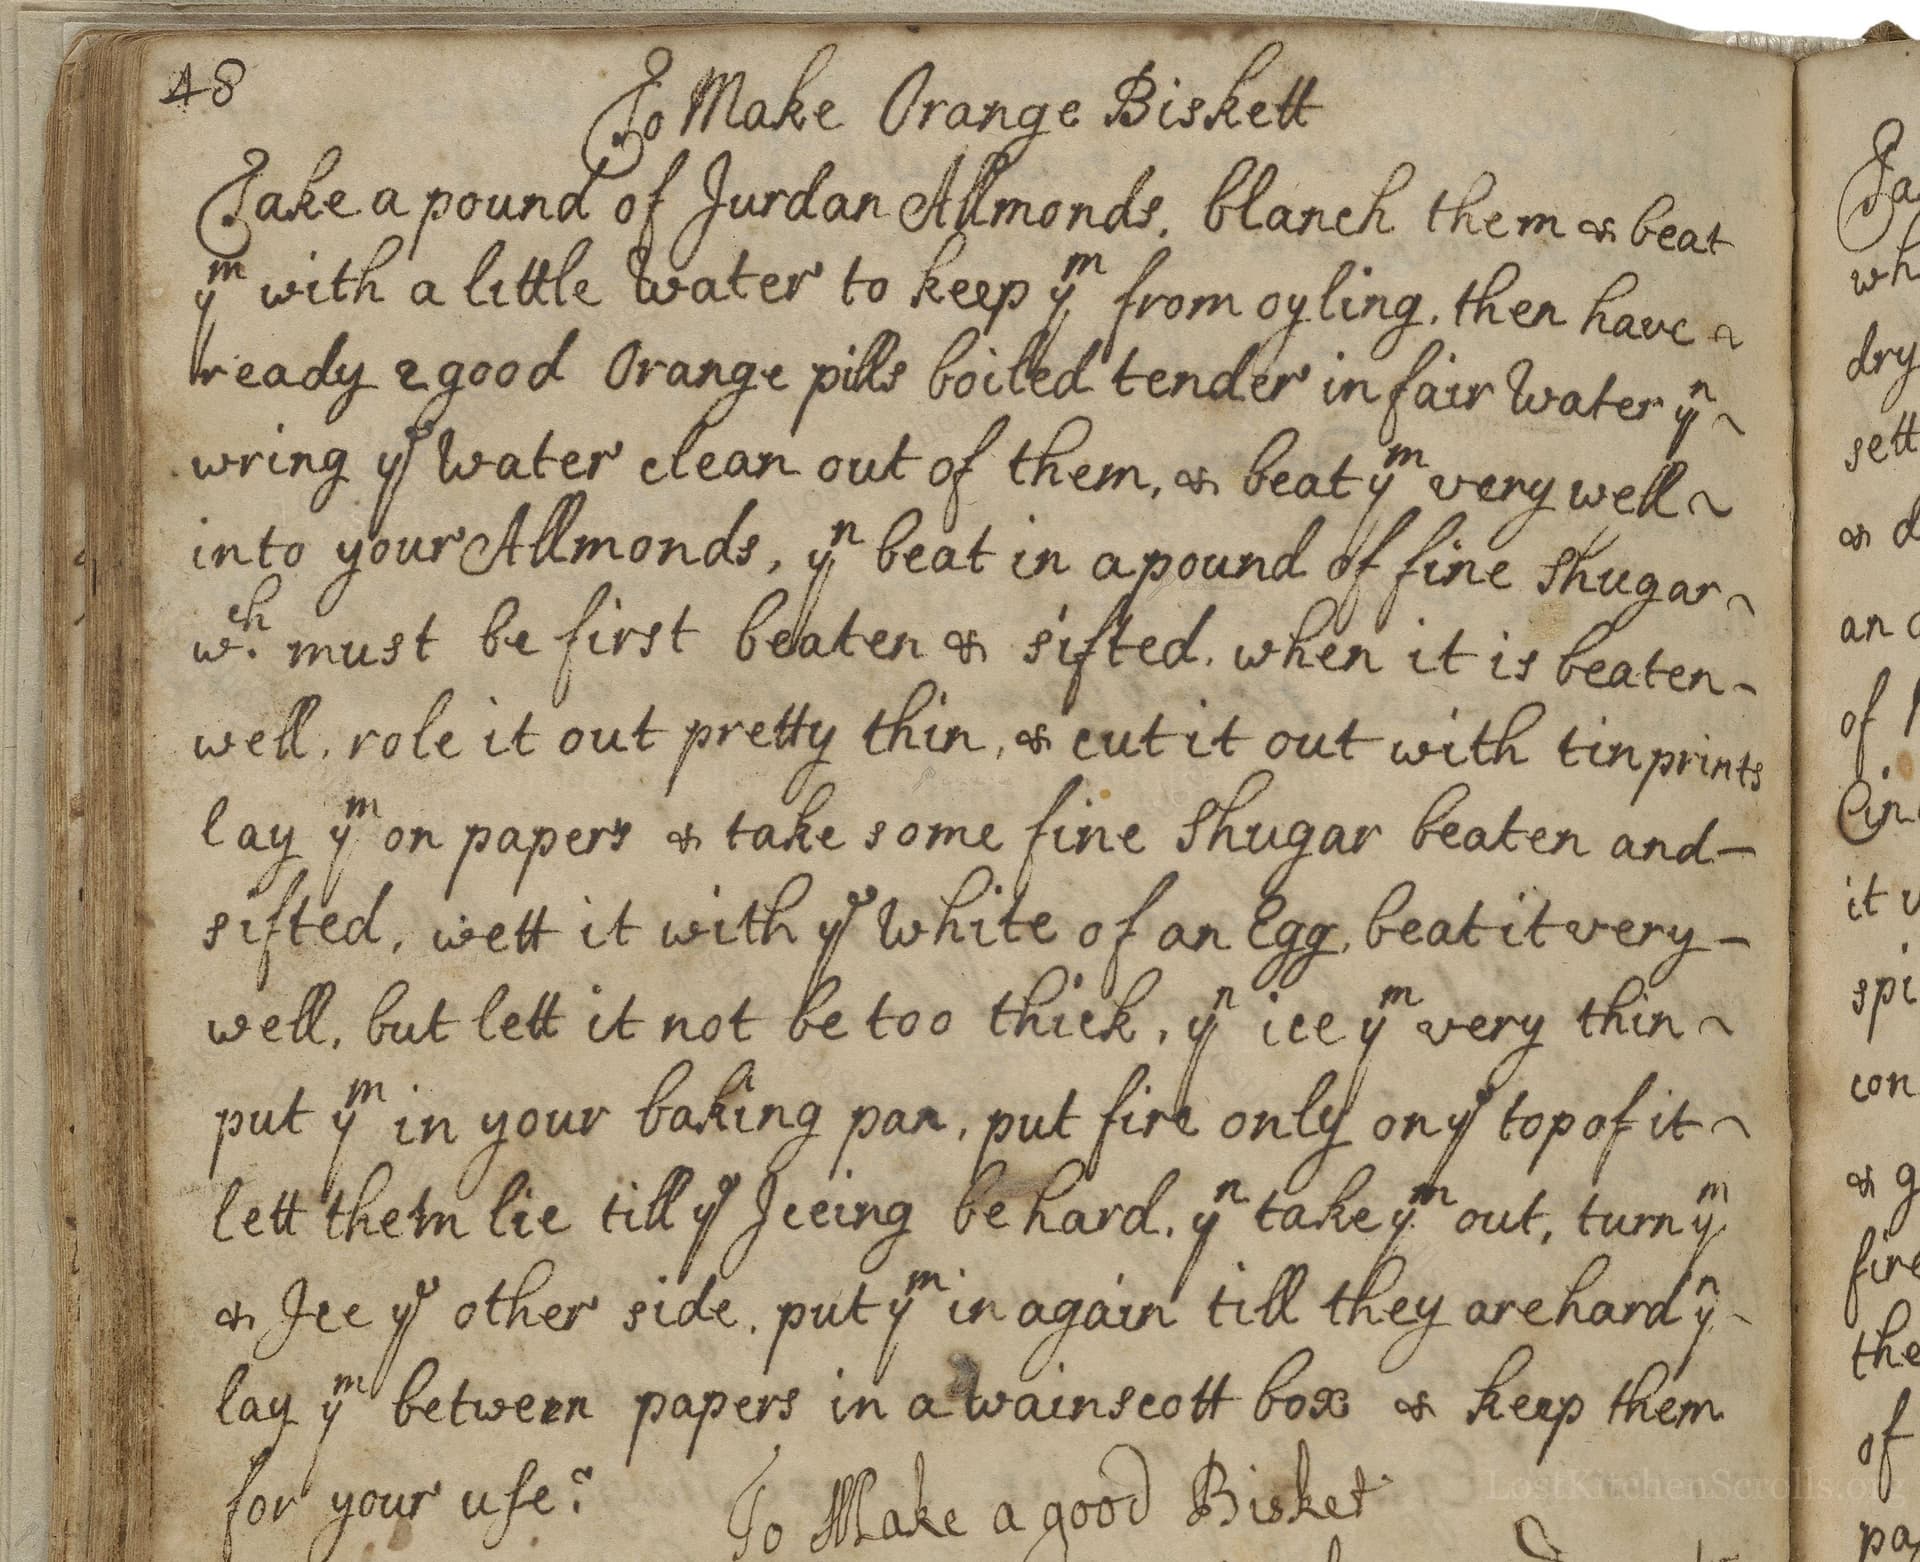 48
To Make Orange Biskett
Take a pound of Jurdan Allmonds, blanch them & beat
yᵐ with a little Water to keep yᵐ from oyling, then have ~
ready 2 good Orange pills boiled tender in fair Water yⁿ ~
wring yᵉ Water clean out of them, & beat yᵐ very well ~
into your Allmonds, yⁿ beat in a pound of fine Shugar ~
wᶜʰ. must be first beaten & sifted, when it is beaten -
well, role it out pretty thin, & cut it out with tin prints
lay yᵐ on papers & take some fine Shugar beaten and -
sifted, wett it with yᵉ White of an Egg, beat it very -
well, but lett it not be too thick, yⁿ ice yᵐ very thin ~
put yᵐ in your baking pan, put fire only on yᵉ top of it ~
lett them lie till yᵉ Iceing be hard, yⁿ take yᵐ out, turn yᵐ
& Ice yᵉ other side, put yᵐ in again till they are hard yⁿ -
lay yᵐ between papers in a wainscott box & keep them
for your use:
To Make a good Bisket
Ta
wh
dry
sett
& d
an
of
it
spi
con
& g
fire
the
of
pa
LostKitchenScrolls.org